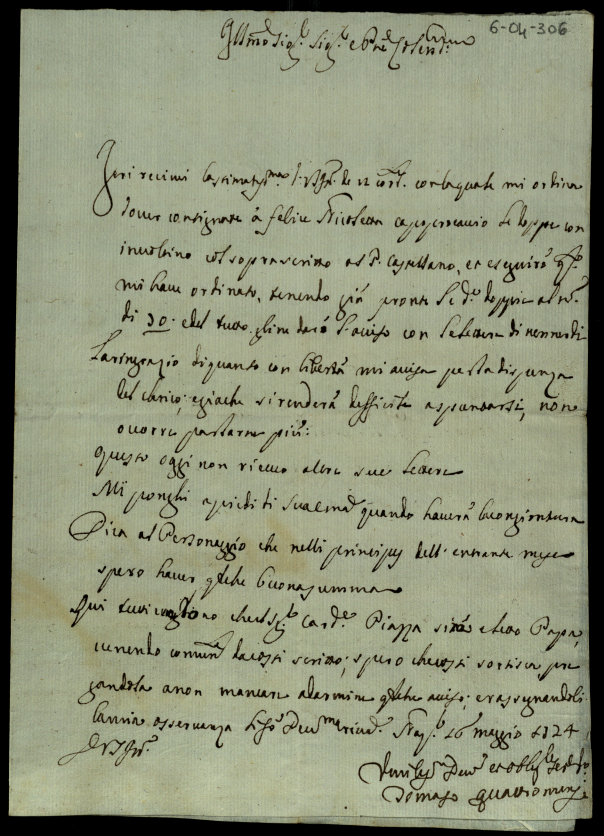 6-04-306
Ill.mo Sig.r Sig.r e P.ne Col.mo
Jeri recivei la stimatiss.ma di V.S. Ill.ma de 12 cor.te con la quale mi ordina
dover consignare à Felice Nicoletta capoprocaccio le doppie con
involtino col soprascritto al P. Castellano, et eseguirò q.to
mi have ordinato, tenendo già pronte le d.e doppie al n.o
di 30. e del tutto gline darò l'aviso con la lettera di venerdì
La ringrazio di quanto con libertà mi avisa per la dispenza
del carico; e giache si renderà difficile a spuntarsi, non
occorre parlarne più:
Questo oggi non ricevo altre sue lettere
Mi ponghi a piedi di Sua Em.a quando haverà buongiontura
Dica al Personaggio che nelli principij dell'entrante mese
spero haver qualche buona summa
Qui tutti vogliono che il S.r Card.e Piazza sia eletto Papa,
venendo comun.te da costì scritto; spero che costì sortisca, pre
gandola a non mancare a darmine qualche aviso; e rassegnandoli
la mia osservanza li fò Dev.ma river.a Nap. 16 maggio 1724
Di V.S. Ill.ma
Umiliss.o Dev.o et obblig.o Ser.re
Tomaso Quattromini